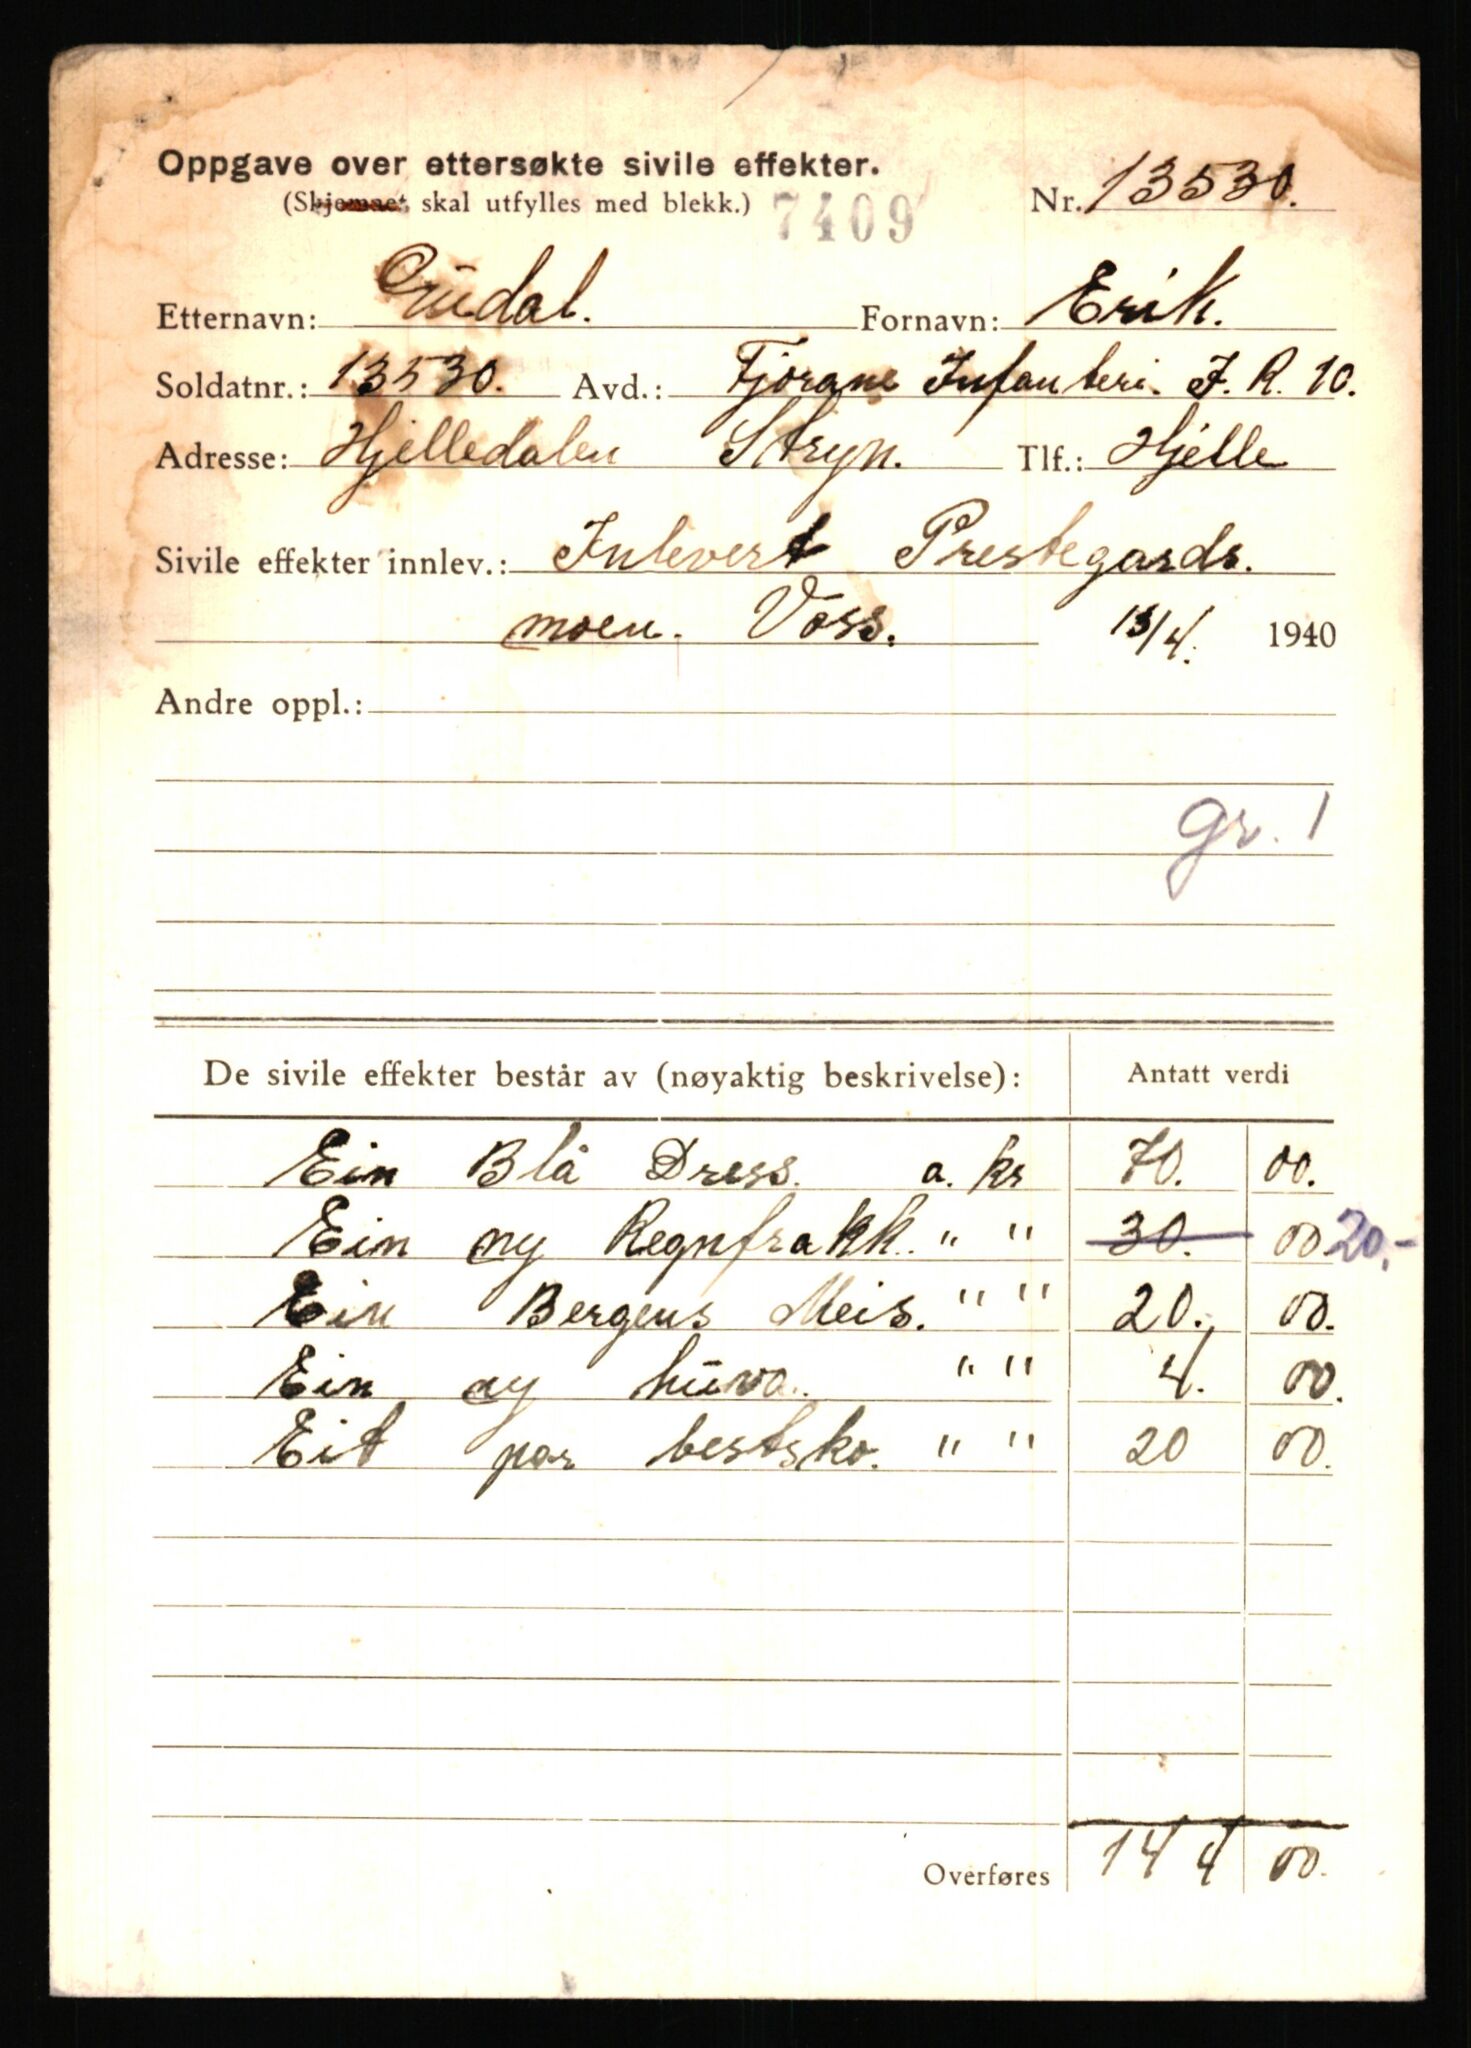 Oppgave over ettersøkte sivile effekter.
(Skjemaet skal utfylles med blekk.) 7409 Nr. 13530.
Etternavn: Gudal. Fornavn: Erik.
Soldatnr.: 13530. Avd.: Fjorane Infanteri. I. R. 10.
Adresse: Hjelledalen Stryn. Tlf.: Hjelle
Sivile effekter innlev.: Inlevert Prestegards.
moen. Voss. 13/4. 1940
Andre oppl.:
gr. 1
De sivile effekter består av (nøyaktig beskrivelse): Antatt verdi
Ein Blå Dress. a. kr 70. 00.
Ein ny Regnfrakk. " " 30. 00 20,-
Ein Bergens Meis. " " 20., 00.
Ein ny huva. " " 4. 00.
Eit par bestsko. " " 20 00.
Overføres 144 00.